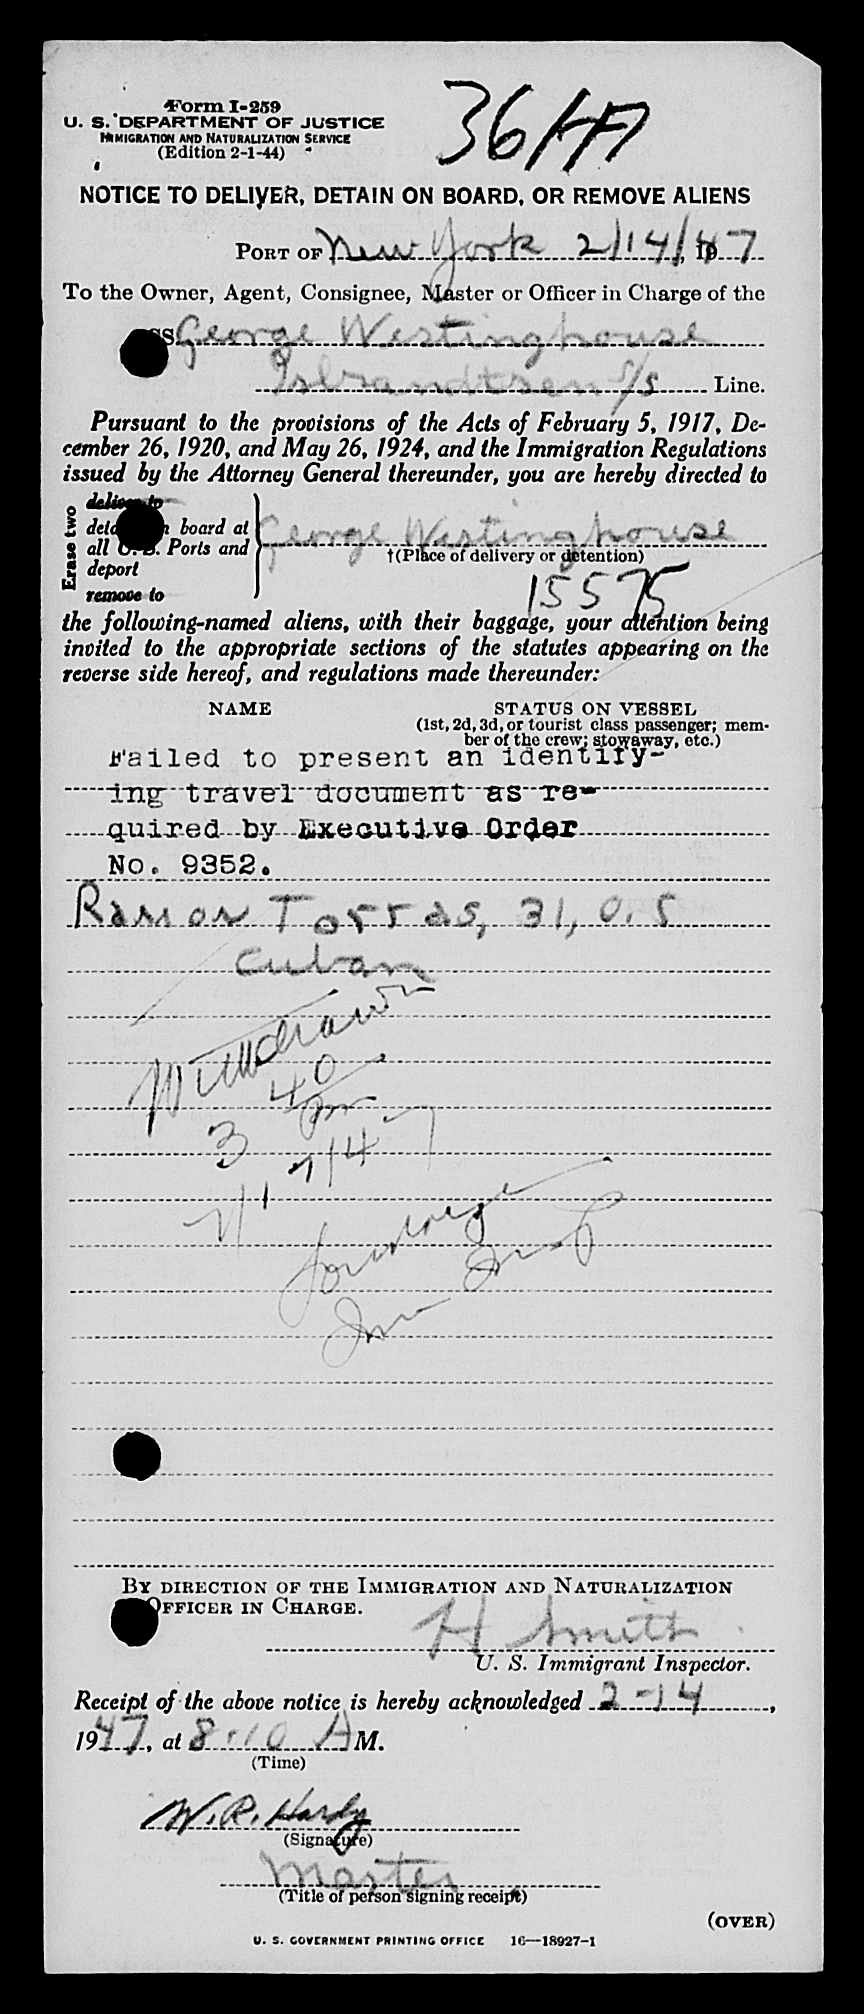 Form I-259
U. S. DEPARTMENT OF JUSTICE
IMMIGRATION AND NATURALIZATION SERVICE
(Edition 2-1-44)
NOTICE TO DELIVER, DETAIN ON BOARD, OR REMOVE ALIENS
PORT OF New York 2/14/, 1947
To the Owner, Agent, Consignee, Master or Officer in Charge of the
SS George Westinghouse
Isbrandtsen S/S Line.
Pursuant to the provisions of the Acts of February 5, 1917, De-
cember 26, 1920, and May 26, 1924, and the Immigration Regulations
issued by the Attorney General thereunder, you are hereby directed to
Erase two
deliver to
board at
all U.S. Ports and
deport
remove to
George Westinghouse
†(Place of delivery or detention)
15575
the following-named aliens, with their baggage, your attention being
invited to the appropriate sections of the statutes appearing on the
reverse side hereof, and regulations made thereunder:
NAME STATUS ON VESSEL
(1st, 2d, 3d, or tourist class passenger; mem-
ber of the crew; stowaway, etc.)
Failed to present an identify-
ing travel document as re-
quired by Executive Order
No. 9352.
Ramon Torras, 31, O.S
Cuban
Withdrawn
3 40 pm
2/17/47
By DIRECTION OF THE IMMIGRATION AND NATURALIZATION
OFFICER IN CHARGE.
H Smith
U. S. Immigrant Inspector.
Receipt of the above notice is hereby acknowledged 2-14,
1947, at 8:10 AM.
(Time)
W. R. Hardy
(Signature)
Master
(Title of person signing receipt)
(OVER)
U. S. GOVERNMENT PRINTING OFFICE 16—18927-1